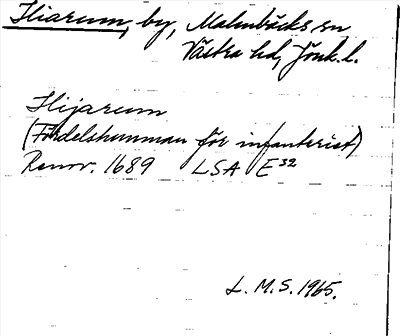 Iliarum, by, Malmbäcks sn
Västra hd, Jönk. l.
Ilijarum
(Fördelshemman för infanteriet)
Renov. 1689 LSA E³²
L. M. S. 1965.